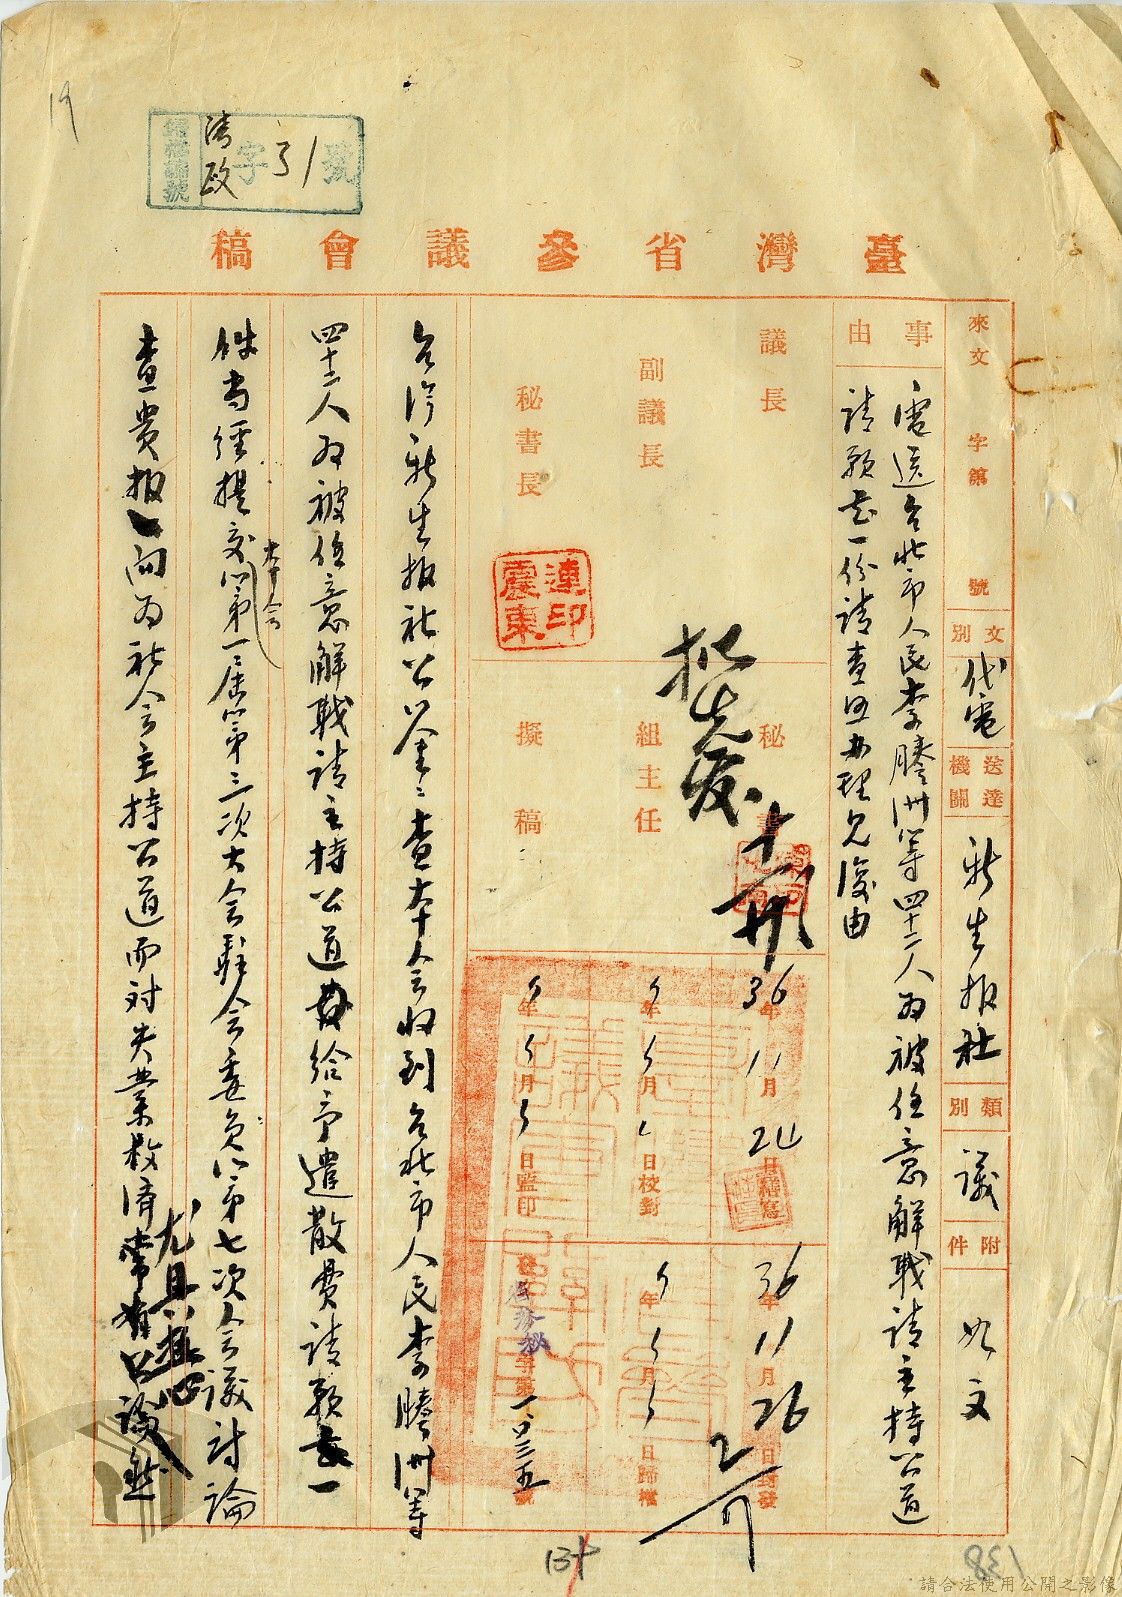 19
歸檔編號 清政字31號
臺灣省參議會稿
來文 字第 號
文別 代電
送達機關 新生報社
類別 議
附件 如文
事由
電送台北市人民李騰洲等四十二人為被任意解職請主持公道
請願書一份請查照辦理見復由
議長
副議長
秘書長
連震東印
秘書
組主任
擬稿
批先發
36年11月24日繕寫
年 月 日校對
年 月 日監印
36年11月26日封發
年 月 日歸檔
發文 參秘字第一〇三五號
台湾新生報社公公鑒：查本會收到台北市人民李騰洲等
四十二人為被任意解職請主持公道給予遣散費請願一
件當經提交本會第一屆第三次大會駐會委員第七次會議討論
查貴報向為社會主持公道而対失業救濟尤具推心
138
請合法使用公開之影像